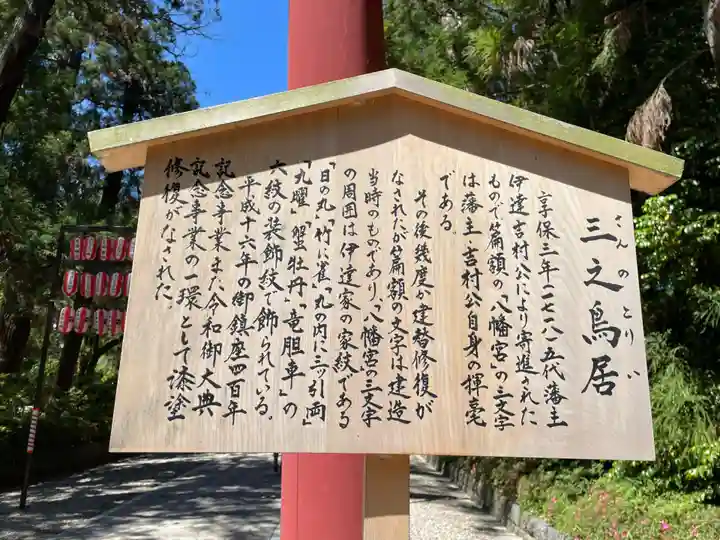 三之鳥居
さんのとりい
享保三年(一七一八)五代藩主
伊達吉村公により寄進された
もので篇額の「八幡宮」の三文字
は藩主・吉村公自身の揮毫
である。
その後幾度か建替修復が
なされたが篇額の文字は建造
当時のものであり、「八幡宮」の三文字
の周囲は伊達家の家紋である
「日の丸」「竹に雀」「丸の内に三ツ引両」
「九曜」「蟹牡丹」「竜胆車」の
六紋の装飾紋で飾られてゐる。
平成十六年の御鎮座四百年
記念事業また令和御大典
記念事業の一環として漆塗
修復がなされた。